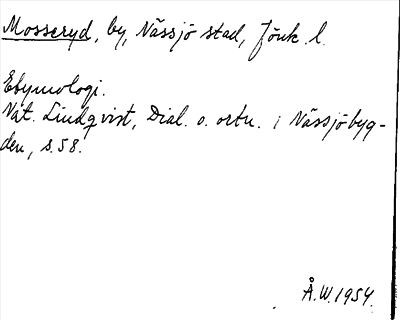 Mosseryd, by, Nässjö stad, Jönk. l.
Etymologi.
Nat. Lindqvist, Dial. o. ortn. i Nässjöbyg-
den, s. 58.
Å.W. 1954.